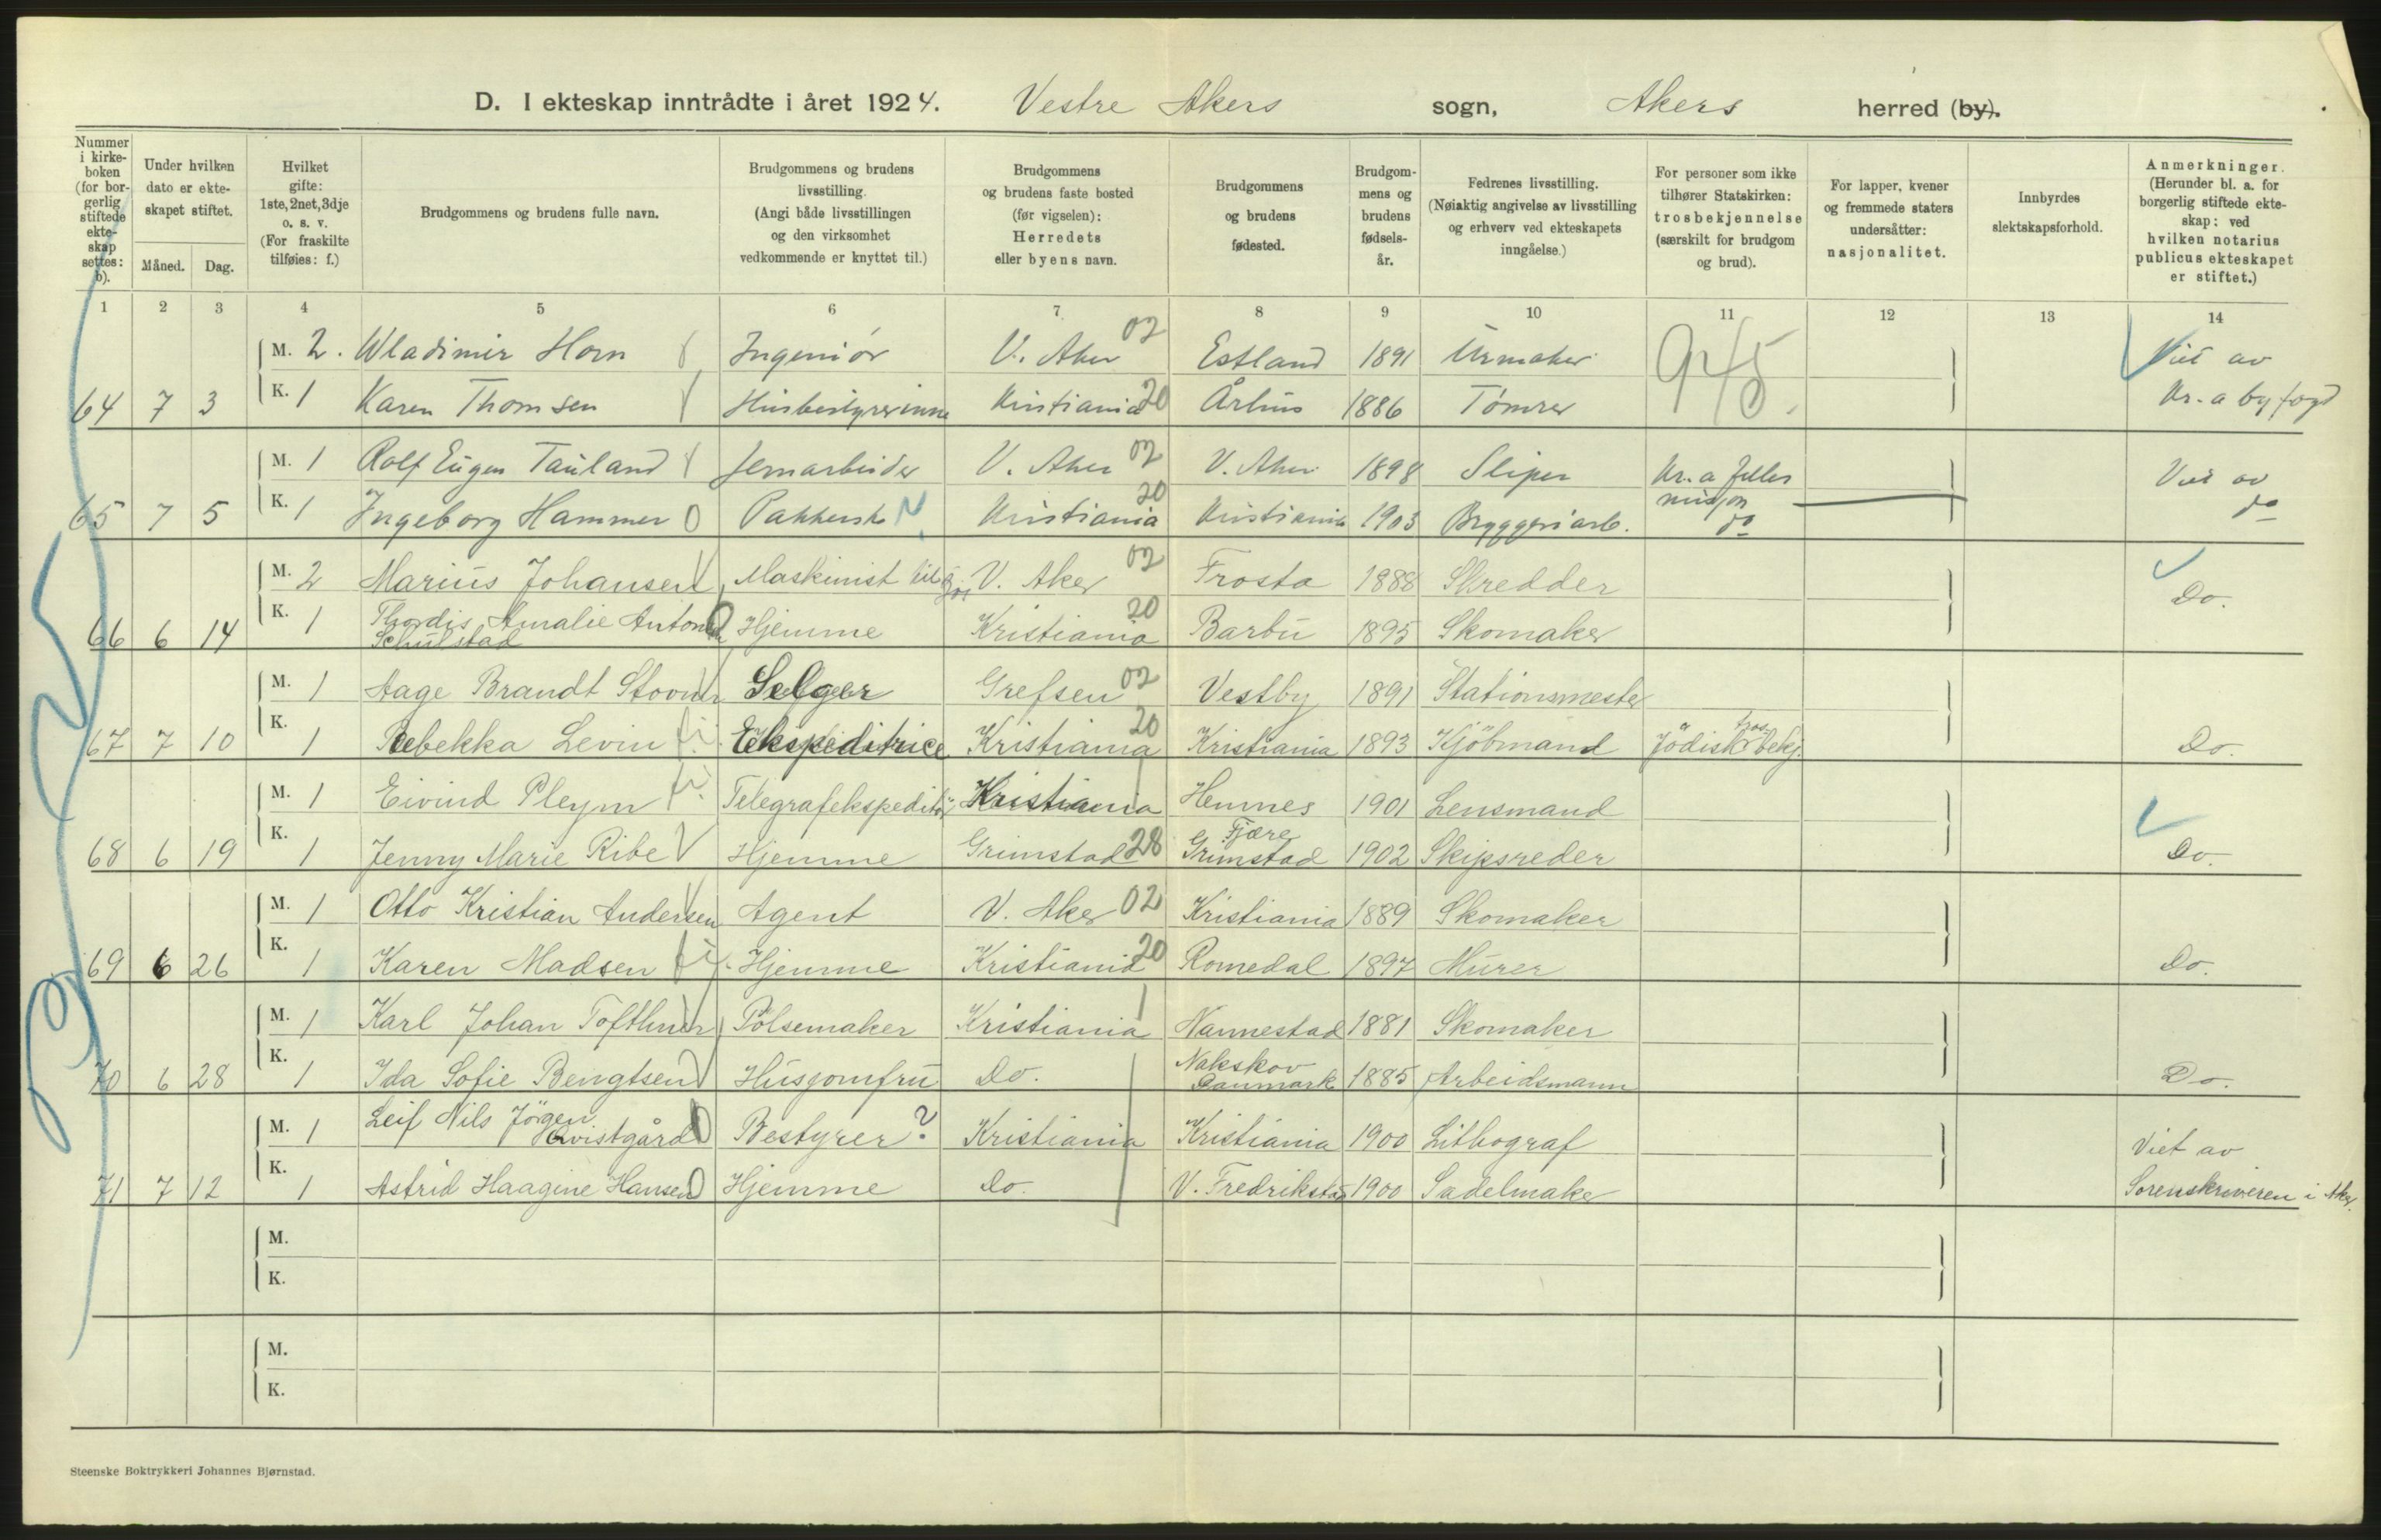 D. I ekteskap inntrådte i året 1924. Vestre Akers sogn, Akers herred (by).
Nummer i kirke-boken (for bor-gerlig stiftede ekte-skap settes: b).
Under hvilken dato er ekte-skapet stiftet.
Måned. Dag.
Hvilket gifte: 1ste, 2net, 3dje o. s. v. (For fraskilte tilføies: f.)
Brudgommens og brudens fulle navn.
Brudgommens og brudens livsstilling. (Angi både livsstillingen og den virksomhet vedkommende er knyttet til.)
Brudgommens og brudens faste bosted (før vigselen): Herredets eller byens navn.
Brudgommens og brudens fødested.
Brudgom-mens og brudens fødsels-år.
Fedrenes livsstilling. (Nøiaktig angivelse av livsstilling og erhverv ved ekteskapets inngåelse.)
For personer som ikke tilhører Statskirken: trosbekjennelse (særskilt for brudgom og brud).
For lapper, kvener og fremmede staters undersåtter: nasjonalitet.
Innbyrdes slektskapsforhold.
Anmerkninger. (Herunder bl. a. for borgerlig stiftede ekte-skap: ved hvilken notarius publicus ekteskapet er stiftet.)
1 2 3 4 5 6 7 8 9 10 11 12 13 14
M. 2. Wladimir Horn Ingeniör V. Aker 02 Estland 1891 Urmaker 945 Viet av
64 7 3 K. 1 Karen Thomsen Husbestyrerinne Kristiania 20 Århus 1886 Tømrer Kr.a byfogd
M. 1 Rolf Eugen Tauland Jernarbeider V. Aker 02 V. Aker 1898 Sliper Kr.a Felles misjon Viet av
65 7 5 K. 1 Ingeborg Hammer Pakkerske Kristiania 20 Kristiania 1903 Bryggeriarb. do do
M. 2 Marius Johansen Maskinist til sjøs V. Aker 02 Frosta 1888 Skredder
66 6 14 K. 1 Thordis Amalie Antonette Schulstad Hjemme Kristiania 20 Barbu 1895 Skomaker Do.
M. 1 Aage Brandt Stovner Selger Grefsen 02 Vestby 1891 Stationsmester
67 7 10 K. 1 Rebekka Levin Ekspeditrice Kristiania 20 Kristiania 1893 Kjöbmand Jödisk trosbekj. Do.
M. 1 Eivind Pleym Telegrafekspeditör Kristiania Hemnes 1901 Lensmand
68 6 19 K. 1 Jenny Marie Ribe Hjemme Grimstad 28 Fjære Grimstad 1902 Skipsreder Do.
M. 1 Otto Kristian Andersen Agent V. Aker 02 Kristiania 1889 Skomaker
69 6 26 K. 1 Karen Madsen Hjemme Kristiania 20 Romedal 1897 Murer Do.
M. 1 Karl Johan Tofthner Pölsemaker Kristiania Nannestad 1881 Skomaker
70 6 28 K. 1 Ida Sofie Bengtsen Husjomfru Do. Nakskov Danmark 1885 Arbeidsmann Do.
M. 1 Leif Nils Jörgen Qvistgård Bestyrer? Kristiania Kristiania 1900 Lithograf Viet av
71 7 12 K. 1 Astrid Haagine Hansen Hjemme Do. V. Fredrikstad 1900 Sadelmaker Sorenskriveren i Aker.
M.
K.
M.
K.
Steenske Boktrykkeri Johannes Bjørnstad.